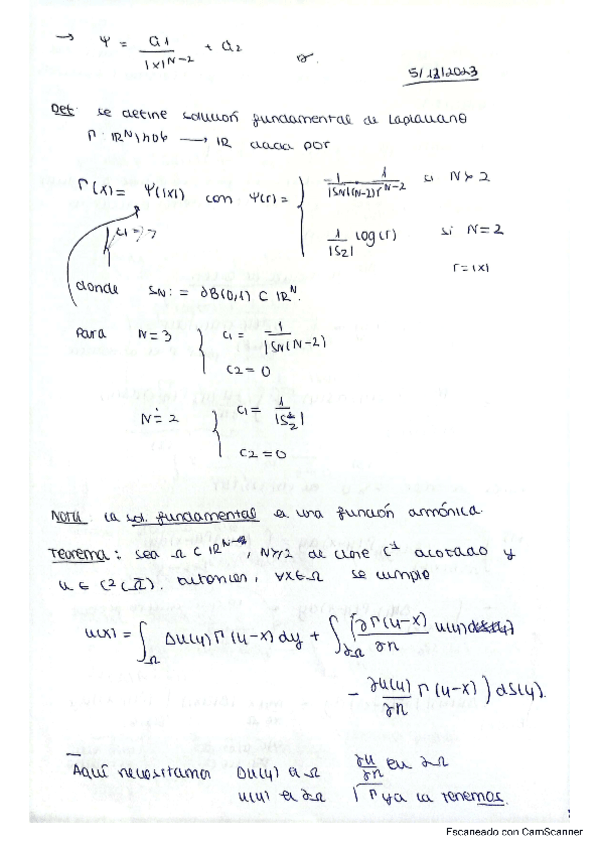 → Ψ = a1 / |x|^{N-2} + a2
5/12/2023
Def: se define solución fundamental de Laplaciano
Γ: IR^N \ {0} → IR dada por
Γ(x) = Ψ(|x|) con Ψ(r) = { -1/(|SN|(N-2)) 1/r^{N-2} si N>2
1/|S2| log(r) si N=2
r=|x|
donde SN := ∂B(0,1) ⊂ IR^N.
Para N=3 { c1 = -1/(|SN|(N-2))
c2=0
N=2 { c1 = 1/|S2|
c2=0
NOTA: la sol. fundamental es una función armónica.
Teorema: sea Ω ⊂ IR^N, N≥2 de clase C^1 acotado y
u ∈ C^2(Ω̄). Entonces, ∀x∈Ω se cumple
u(x) = ∫_Ω Δu(y) Γ(y-x) dy + ∫_∂Ω [ ∂Γ(y-x)/∂n u(y)
- ∂u(y)/∂n Γ(y-x) ) dS(y).
Aquí necesitamos Δu(y) en Ω ∂u/∂n en ∂Ω
u(y) en ∂Ω Γ ya la tenemos.
Escaneado con CamScanner